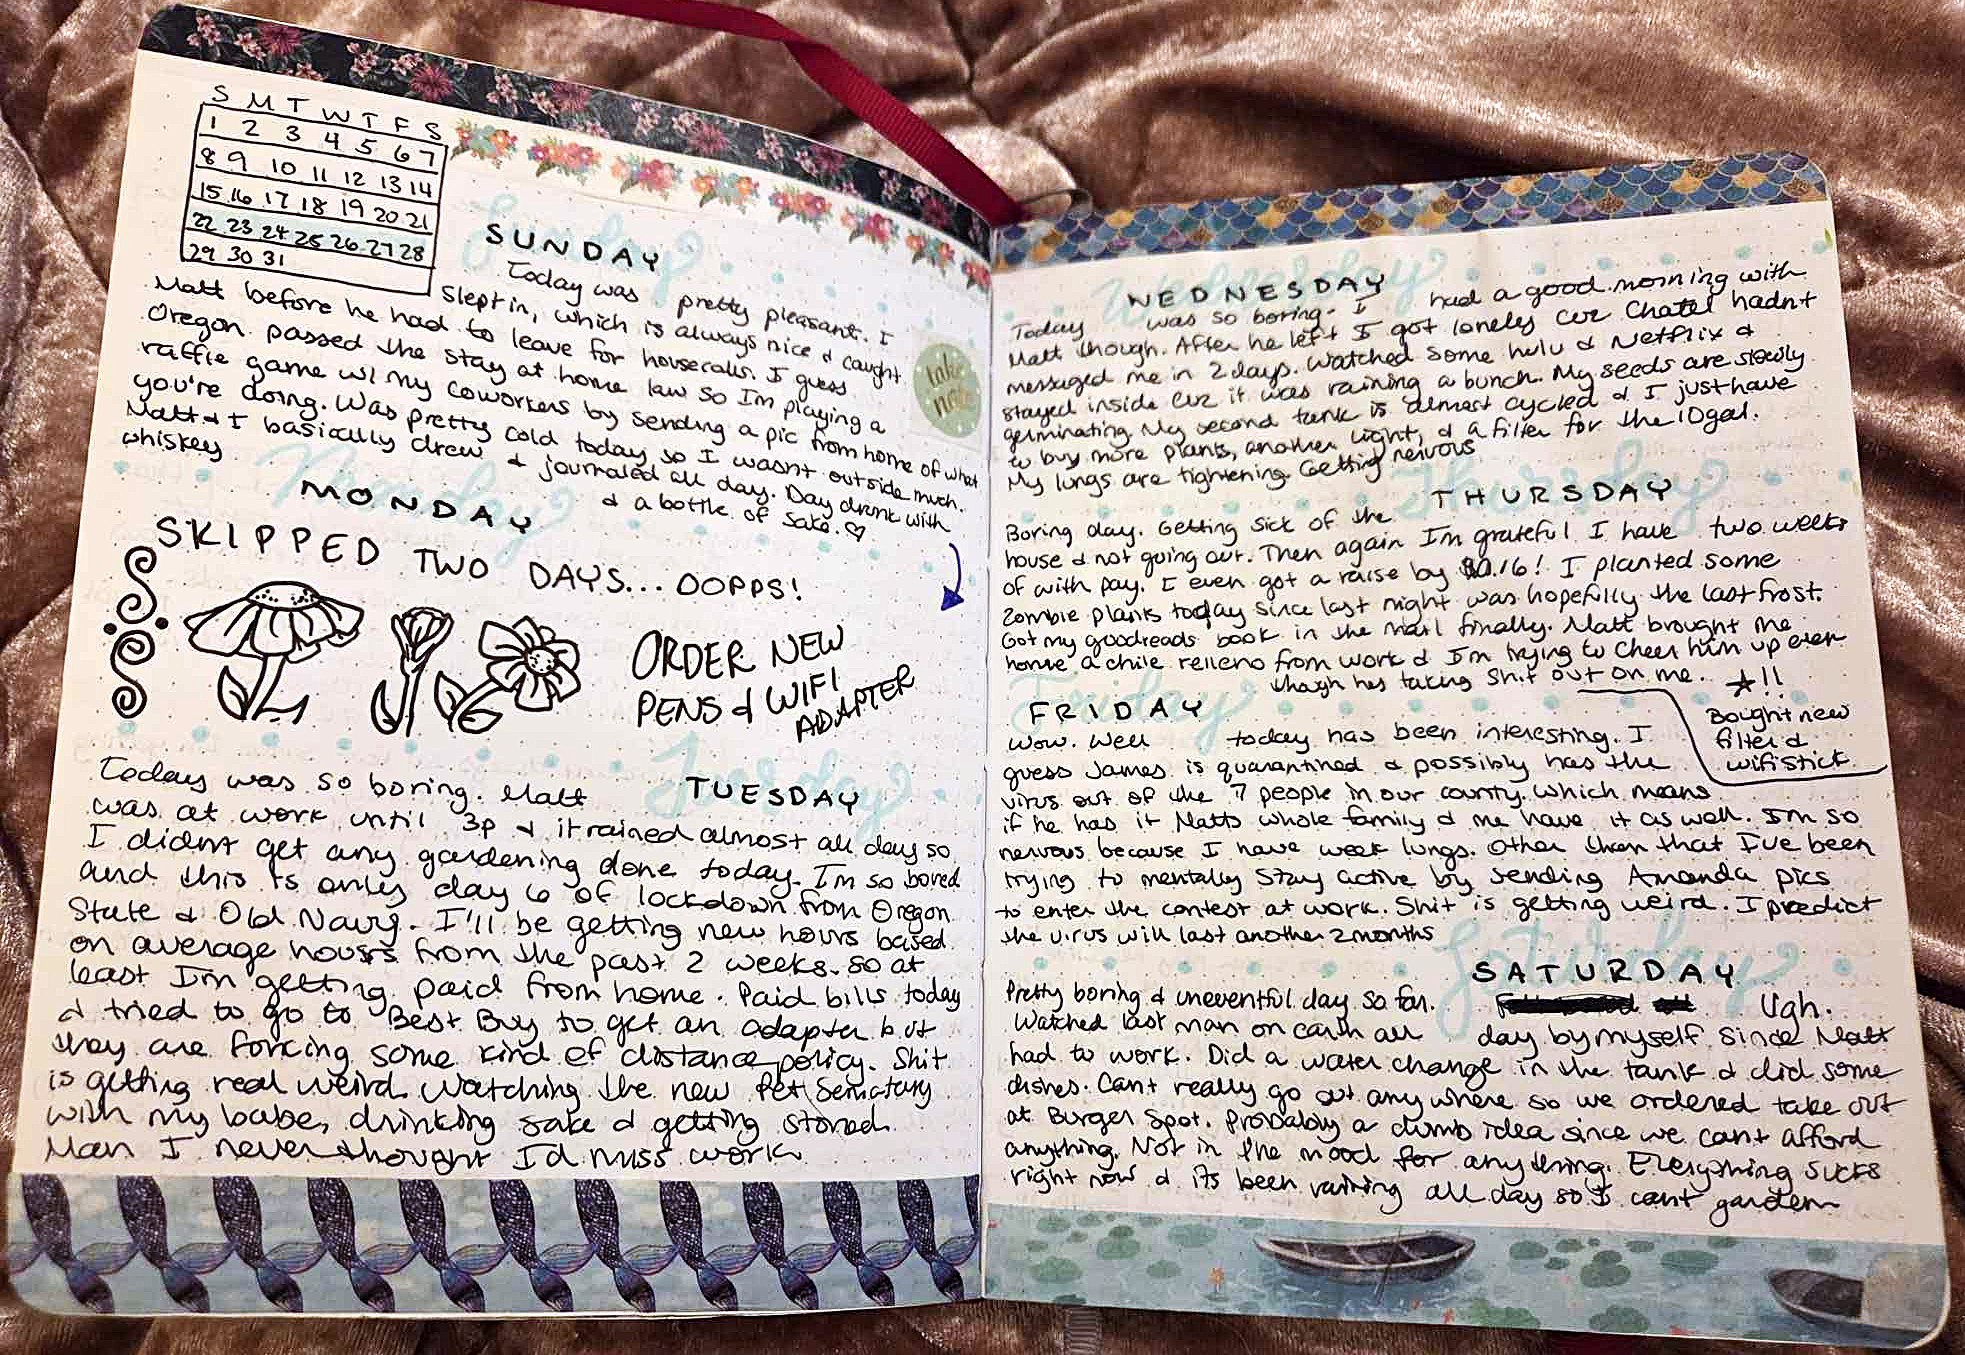 S M T W T F S
1 2 3 4 5 6 7
8 9 10 11 12 13 14
15 16 17 18 19 20 21
22 23 24 25 26 27 28
29 30 31
Sunday
SUNDAY
Today was pretty pleasant. I
slept in, which is always nice & caught
Matt before he had to leave for housecalls. I guess
Oregon passed the stay at home law so Im playing a
raffle game w/ my coworkers by sending a pic from home of what
you're doing. Was pretty cold today so I wasnt outside much.
Matt & I basically drew & journaled all day. Day drunk with
whiskey & a bottle of sake. ♡
take note
Monday
MONDAY
SKIPPED TWO DAYS... OOPPS!
ORDER NEW
PENS & WIFI
ADAPTER
Tuesday
TUESDAY
Today was so boring. Matt
was at work until 3p & it rained almost all day so
I didnt get any gardening done today. Im so bored
and this is only day 6 of lockdown from Oregon
State & Old Navy. I'll be getting new hours based
on average hours from the past 2 weeks. so at
least Im getting paid from home. Paid bills today
& tried to go to Best Buy to get an adapter but
they are forcing some kind of distance policy. Shit
is getting real weird. Watching the new Pet Sematary
with my babe, drinking sake & getting stoned.
Man I never thought Id miss work
Wednesday
WEDNESDAY
Today was so boring. I had a good morning with
Matt though. After he left I got lonely cuz Chatel hadnt
messaged me in 2 days. Watched some hulu & Netflix &
stayed inside cuz it was raining a bunch. My seeds are slowly
germinating. My second tank is almost cycled & I just have
to buy more plants, another light, & a filter for the 10gal.
My lungs are tightening. Getting nervous
Thursday
THURSDAY
Boring day. Getting sick of the
house & not going out. Then again Im grateful I have two weeks
of with pay. I even got a raise by $0.16! I planted some
Zombie plants today since last night was hopefully the last frost.
Got my goodreads book in the mail finally. Matt brought me
home a chile relleno from work & Im trying to cheer him up even
though hes taking shit out on me.
★!!
Bought new
filter &
wifi stick
Friday
FRIDAY
Wow. Well today has been interesting. I
guess James is quarantined & possibly has the
virus out of the 7 people in our county. which means
if he has it Matts whole family & me have it as well. Im so
nervous because I have week lungs. Other then that I've been
trying to mentally stay active by sending Amanda pics
to enter the contest at work. Shit is getting weird. I predict
the virus will last another 2 months
Saturday
SATURDAY
Pretty boring & uneventful day so far. Ugh.
Watched last man on earth all day by myself since Matt
had to work. Did a water change in the tank & did some
dishes. Cant really go out anywhere so we ordered take out
at Burger Spot. Probably a dumb idea since we cant afford
anything. Not in the mood for anything. Everything sucks
right now & its been raining all day so I cant garden